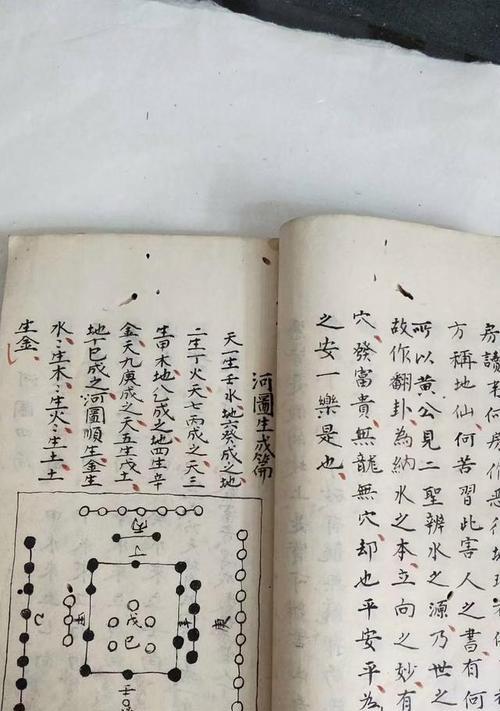 方稱地仙何苦習此害人之書有何
所以黃公見二聖辨水之源乃世之
故作翻卦為納水之本立向之妙有
穴發富貴無龍無穴却也平安平為
之安一樂是也
河圖生成篇
天一生壬水地六癸成之地
二生丁火天七丙成之天三
生甲木地八乙成之地四生辛
金天九庚成之天五生戊土
地十己成之河圖順生金生
水:生木:生火:生土:土
生金
丙
丁
庚
辛
戊
己
甲
乙
壬